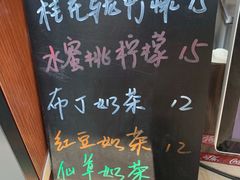 桂花酸柠檬 15
水蜜桃柠檬 15
布丁奶茶 12
红豆奶茶 12
仙草奶茶